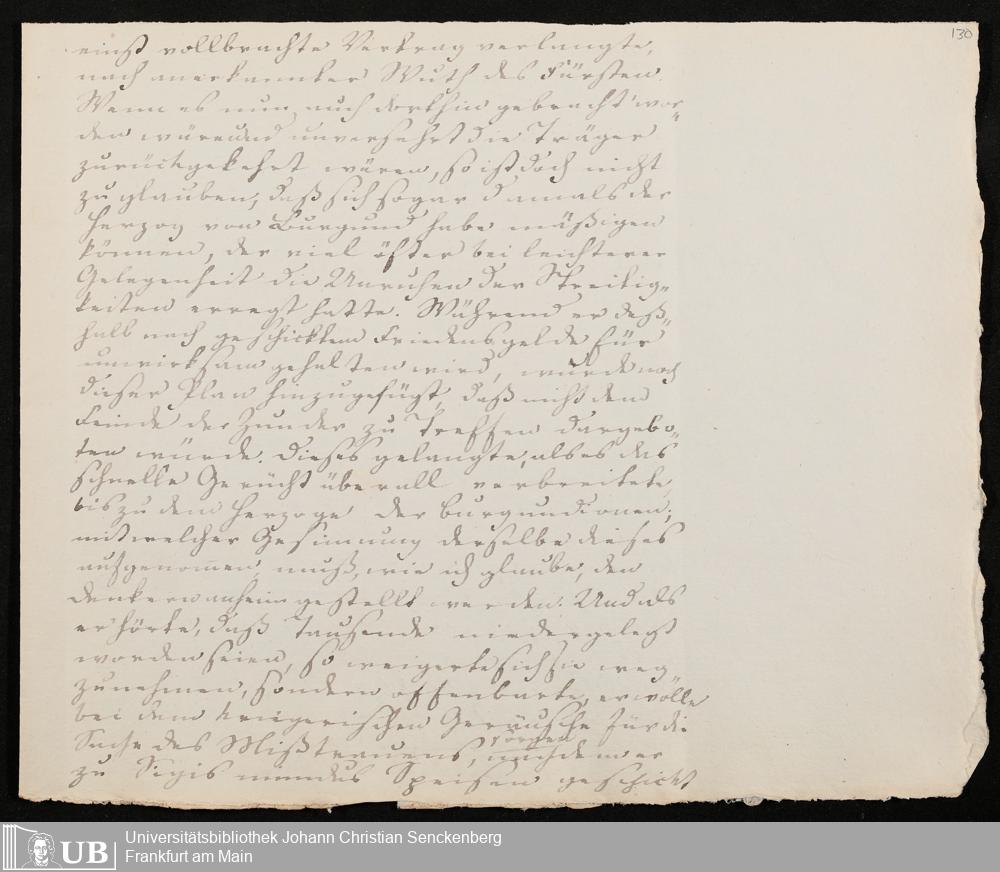 130
einst vollbrachte Vertrag verlangte,
nach anerkannter Wuth des Fürsten.
Wenn es nun auch dorthin gebracht wor„
den wäre und unversehrt die Träger
zurückgekehrt wären, so ist doch nicht
zu glauben, daß sich sogar damals der
Herzog von Burgund habe mäßigen
können, der viel öfter bei leichterer
Gelegenheit die Unruhen der Streitig„
keiten erregt hatte. Während er deß„
halb nach geschicktem Friedensgelde für
unwirksam gehalten wird, wurde noch
dieser Plan hinzugefügt, daß nicht dem
Feinde der Zunder zu Treffen dargebo„
ten würde. Dieses gelangte, als es das
schnelle Gerücht überall verbreitete,
bis zu dem Herzoge der Burgundionen;
mit welcher Gesinnung derselbe dieses
aufgenommen, muß, wie ich glaube, den
Denkern anheim gestellt werden. Und als
er hörte, daß Tausende niedergelegt
worden seien, so weigerte sich sie weg
zunehmen, sondern offenbarte, er wolle
bei dem kriegerischen Geräusche für die
Sache des Mißtrauens sorgen, nachdem er
zu Sigismundus Speisen geschickt
UB
Universitätsbibliothek Johann Christian Senckenberg
Frankfurt am Main